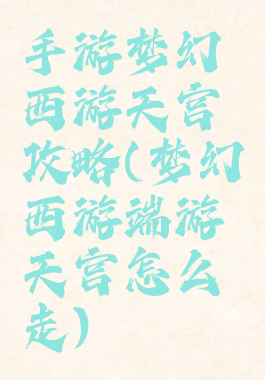 手游梦幻
西游天宫
攻略(梦幻
西游端游
天宫怎么
走)